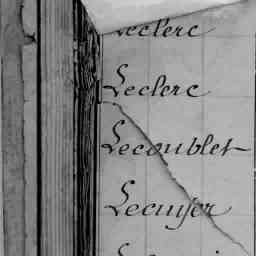 Leclerc
Leclerc
Lecoublet
Lecuyer